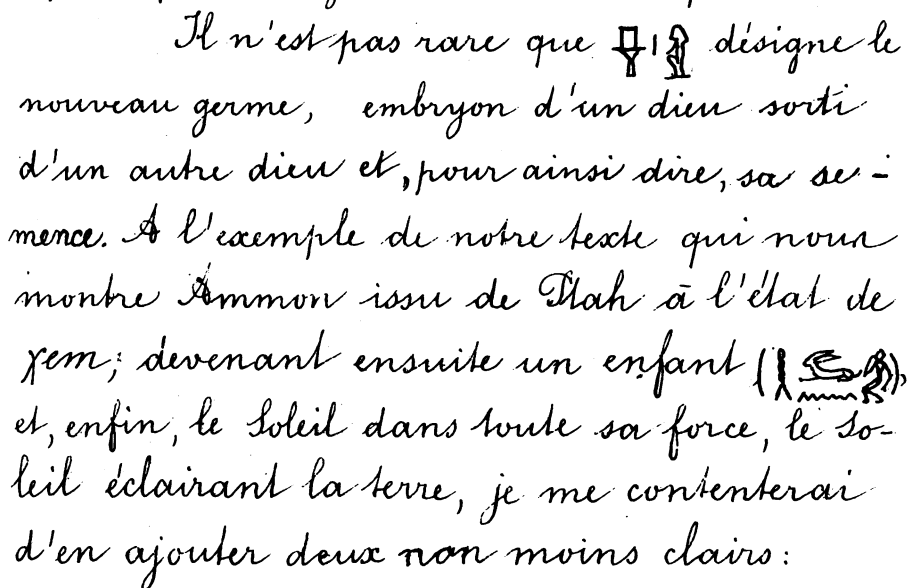 Il n'est pas rare que désigne le
nouveau germe, embryon d'un dieu sorti
d'un autre dieu et, pour ainsi dire, sa se-
mence. A l'exemple de notre texte qui nous
montre Ammon issu de Ptah à l'état de
χem; devenant ensuite un enfant ( ),
et, enfin, le Soleil dans toute sa force, le So-
leil éclairant la terre, je me contenterai
d'en ajouter deux non moins clairs: